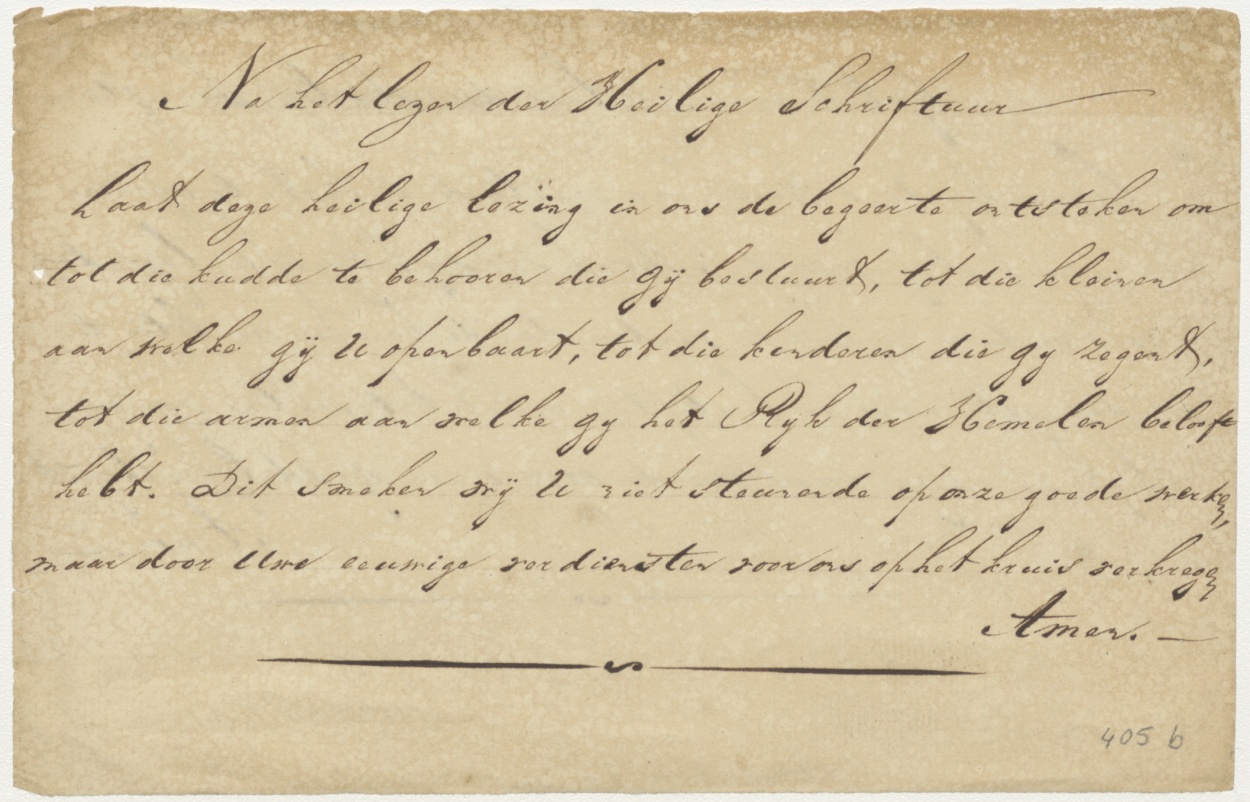 Na het lezen der Heilige Schriftuur
Laat deze heilige lezïng in ons de begeerte ontsteken om
tot die kudde te behooren die gÿ bestuurt, tot die kleinen
aan welke gÿ U openbaart, tot die kinderen die gy zegent,
tot die armen aan welke gy het Ryk der Hemelen belooft
hebt. Dit smeken wÿ U niet steunende op onze goede werken,
maar door Uwe eeuwige verdiensten voor ons op het kruis verkregen
Amen. —
405 b